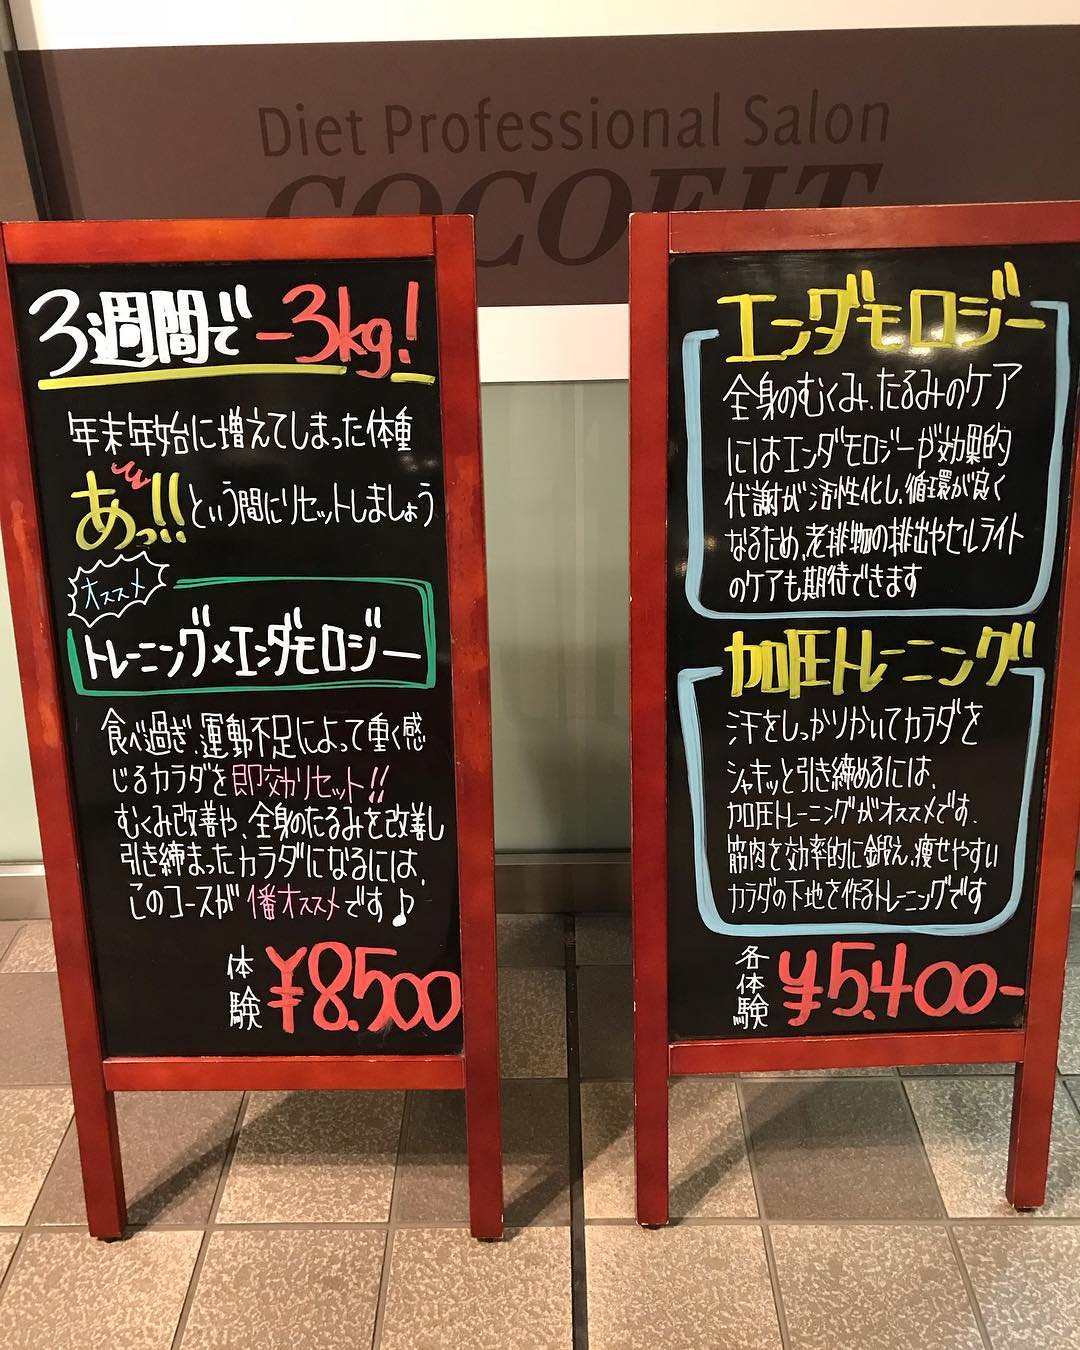 Diet Professional Salon
COCOFIT
3週間で-3kg!
年末年始に増えてしまった体重
あっ!!という間にリセットしましょう
オススメ
トレーニング×エンダモロジー
食べ過ぎ、運動不足によって重く感
じるカラダを即効リセット!!
むくみ改善や、全身のたるみを改善し
引き締まったカラダになるには、
このコースが1番オススメです♪
体験 ¥8.500
エンダモロジー
全身のむくみ、たるみのケア
にはエンダモロジーが効果的
代謝が活性化し、循環が良く
なるため、老排物の排出やセルライト
のケアも期待できます
加圧トレーニング
汗をしっかりかいてカラダを
シャキッと引き締めるには、
加圧トレーニングがオススメです。
筋肉を効率的に鍛え、痩せやすい
カラダの下地を作るトレーニングです
各体験 ¥5.400-